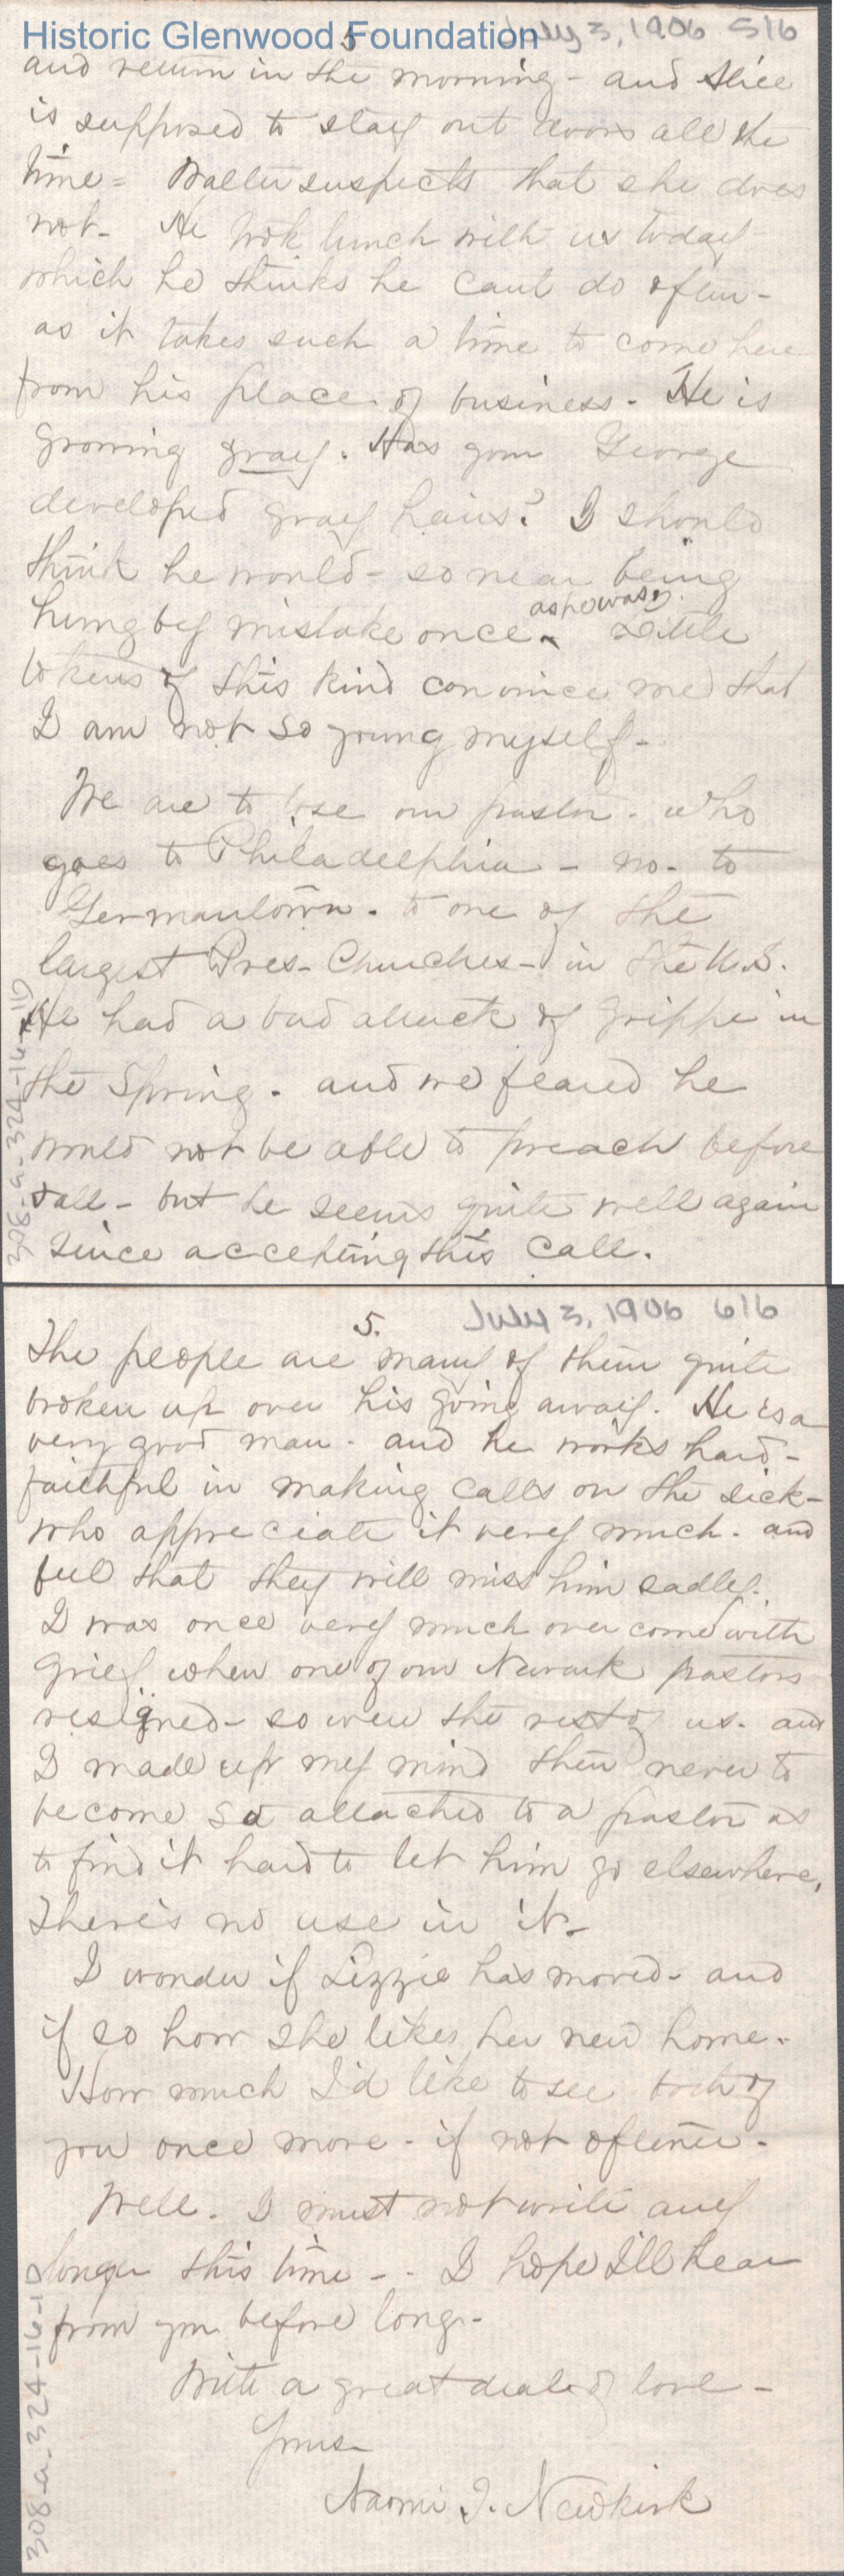 Historic Glenwood Foundation
July 3, 1906 5/6
5
and return in the morning - and Alice
is supposed to stay out doors all the
time = Walter suspects that she does
not - He took lunch with us today -
which he thinks he cant do often -
as it takes such a time to come here
from his place of business - He is
growing gray. Has your George
developed gray hairs? I should
think he would - so near being
hung by mistake once as he was. Little
tokens of this kind convince me that
I am not so young myself -
We are to lose our pastor - who
goes to Philadelphia - no - to
Germantown - to one of the
largest Pres - Churches - in the U.S.
He had a bad attack of grippe in
the Spring - and we feared he
would not be able to preach before
Fall - but he seems quite well again
since accepting this call.
308-a-324-16-
5.
July 3, 1906 6/6
The people are many of them quite
broken up over his going away. He is a
very good man - and he works hard -
faithful in making calls on the sick -
who appreciate it very much - and
feel that they will miss him sadly.
I was once very much over come with
grief when one of our Newark pastors
resigned - so were the rest of us - and
I made up my mind then never to
become so attached to a pastor as
to find it hard to let him go elsewhere.
There's no use in it -
I wonder if Lizzie has moved - and
if so how she likes her new home -
How much I'd like to see both of
you once more - if not oftener -
Well - I must not write any
longer this time - - I hope I'll hear
from you before long -
With a great deal of love -
Yours -
Naomi I. Newkirk
308-a-324-16-